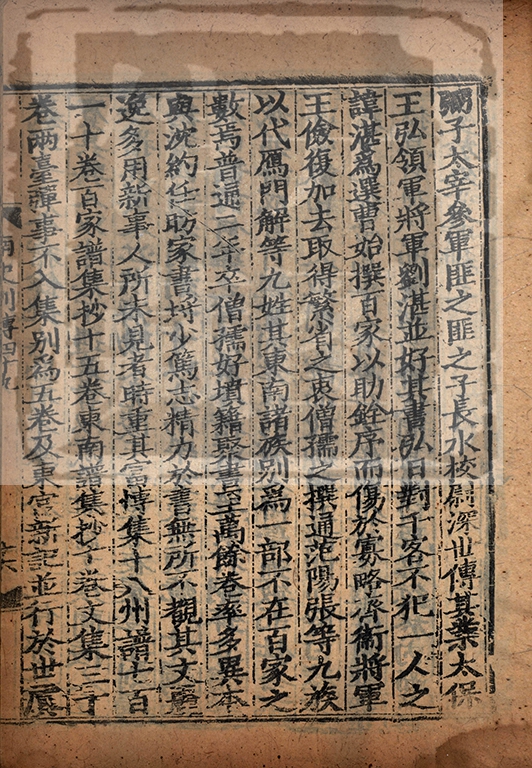 弼子太宰參軍匪之匪之子長水校尉深世傳其業太保
王弘領軍將軍劉湛並好其書弘日對千客不犯一人之
諱湛爲選曹始撰百家以助銓序而傷於寡略齊衛將軍
王儉復加去取得繁省之衷僧孺之撰通范陽張等九族
以代鴈門解等九姓其東南諸族別爲一部不在百家之
數焉普通二年卒僧孺好墳籍聚書至萬餘卷率多異本
與沈約任昉家書埒少篤志精力於書無所不觀其文麗
逸多用新事人所未見者時重其富博集十八州譜七百
一十卷百家譜集抄十五卷東南譜集抄十卷文集三十
卷兩臺彈事不入集別爲五卷及東宮新記並行於世虞
南史列傳四十九